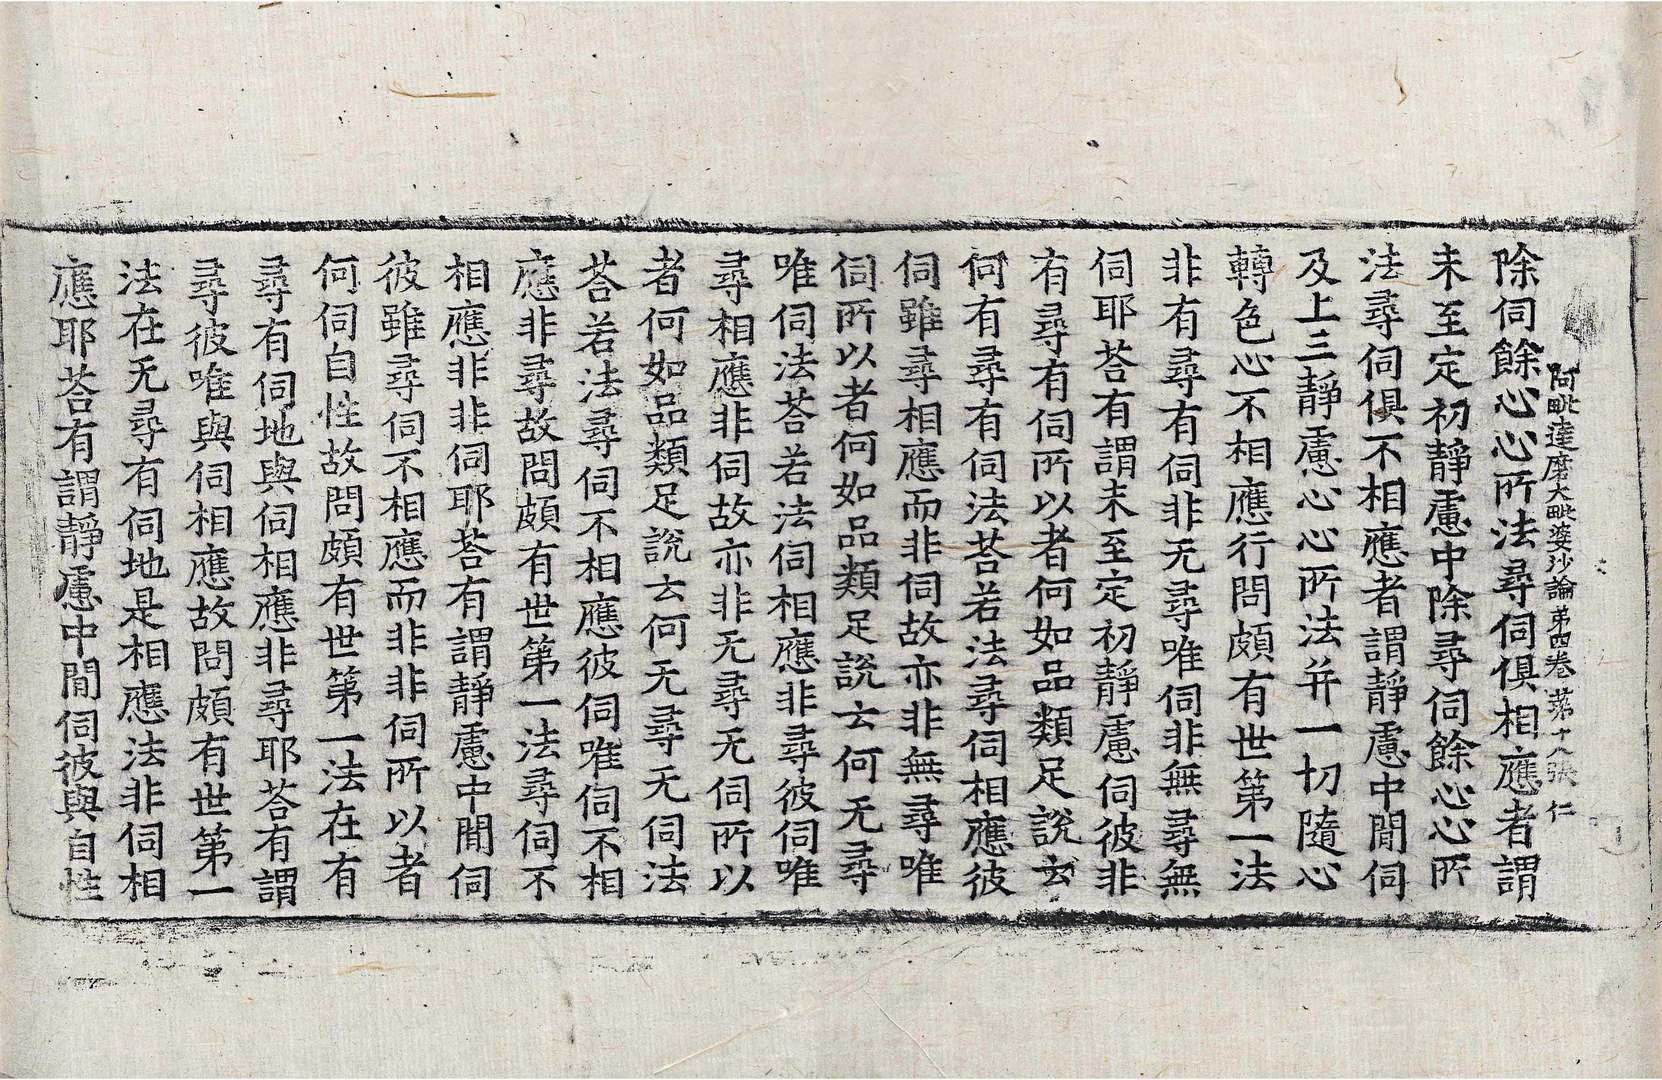 阿毗達磨大毗婆沙論苐四卷 苐十八張 仁
除伺餘心心所法尋伺俱相應者謂
未至定初靜慮中除尋伺餘心心所
法尋伺俱不相應者謂靜慮中閒伺
及上三靜慮心心所法并一切隨心
轉色心不相應行問頗有世第一法
非有尋有伺非无尋唯伺非無尋無
伺耶荅有謂未至定初靜慮伺彼非
有尋有伺所以者何如品類足說云
何有尋有伺法荅若法尋伺相應彼
伺雖尋相應而非伺故亦非無尋唯
伺所以者何如品類足說云何无尋
唯伺法荅若法伺相應非尋彼伺唯
尋相應非伺故亦非无尋无伺所以
者何如品類足說云何无尋无伺法
荅若法尋伺不相應彼伺唯伺不相
應非尋故問頗有世第一法尋伺不
相應非非伺耶荅有謂靜慮中閒伺
彼雖尋伺不相應而非非伺所以者
何伺自性故問頗有世第一法在有
尋有伺地與伺相應非尋耶荅有謂
尋彼唯與伺相應故問頗有世第一
法在无尋有伺地是相應法非伺相
應耶荅有謂靜慮中閒伺彼與自性